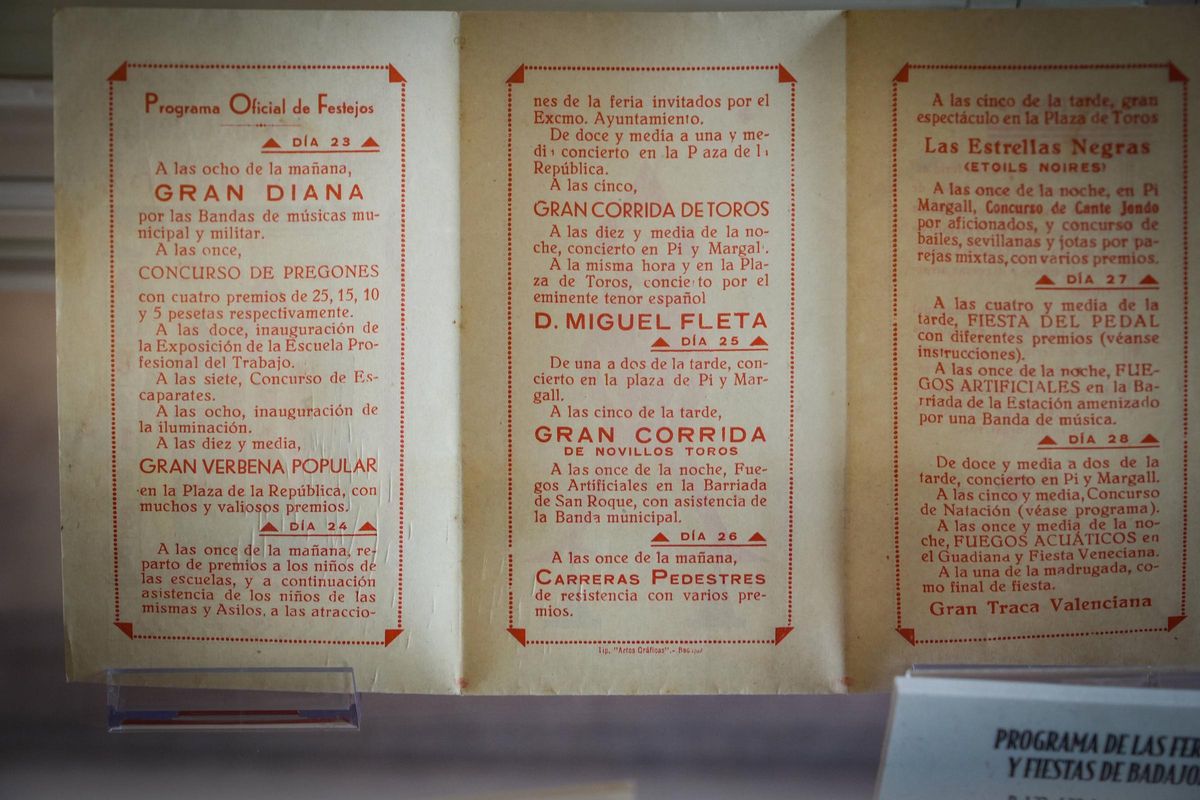 Programa Oficial de Festejos
DÍA 23
A las ocho de la mañana,
GRAN DIANA
por las Bandas de músicas mu-
nicipal y militar.
A las once,
CONCURSO DE PREGONES
con cuatro premios de 25, 15, 10
y 5 pesetas respectivamente.
A las doce, inauguración de
la Exposición de la Escuela Pro-
fesional del Trabajo.
A las siete, Concurso de Es-
caparates.
A las ocho, inauguración de
la iluminación.
A las diez y media,
GRAN VERBENA POPULAR
en la Plaza de la República, con
muchos y valiosos premios.
DÍA 24
A las once de la mañana, re-
parto de premios a los niños de
las escuelas, y a continuación
asistencia de los niños de las
mismas y Asilos, a las atraccio-
nes de la feria invitados por el
Excmo. Ayuntamiento.
De doce y media a una y me-
di concierto en la P aza de l
República.
A las cinco,
GRAN CORRIDA DE TOROS
A las diez y media de la no-
che, concierto en Pi y Margal.
A la misma hora y en la Pla-
za de Toros, concierto por el
eminente tenor español
D. MIGUEL FLETA
DÍA 25
De una a dos de la tarde, con-
cierto en la plaza de Pi y Mar-
gall.
A las cinco de la tarde,
GRAN CORRIDA
DE NOVILLOS TOROS
A las once de la noche, Fue-
gos Artificiales en la Barriada
de San Roque, con asistencia de
la Banda municipal.
DÍA 26
A las once de la mañana,
CARRERAS PEDESTRES
de resistencia con varios pre-
mios.
Tip. "Artes Gráficas".-
A las cinco de la tarde, gran
espectáculo en la Plaza de Toros
Las Estrellas Negras
(ETOILS NOIRES)
A las once de la noche, en Pi
Margall, Concurso de Cante Jondo
por aficionados, y concurso de
bailes, sevillanas y jotas por pa-
rejas mixtas, con varios premios.
DÍA 27
A las cuatro y media de la
tarde, FIESTA DEL PEDAL
con diferentes premios (véanse
instrucciones).
A las once de la noche, FUE-
GOS ARTIFICIALES en la Ba-
rriada de la Estación amenizado
por una Banda de música.
DÍA 28
De doce y media a dos de la
tarde, concierto en Pi y Margall.
A las cinco y media, Concurso
de Natación (véase programa).
A las once y media de la no-
che, FUEGOS ACUÁTICOS en
el Guadiana y Fiesta Veneciana.
A la una de la madrugada, co-
mo final de fiesta.
Gran Traca Valenciana
PROGRAMA DE LAS FER
Y FIESTAS DE BADAJO